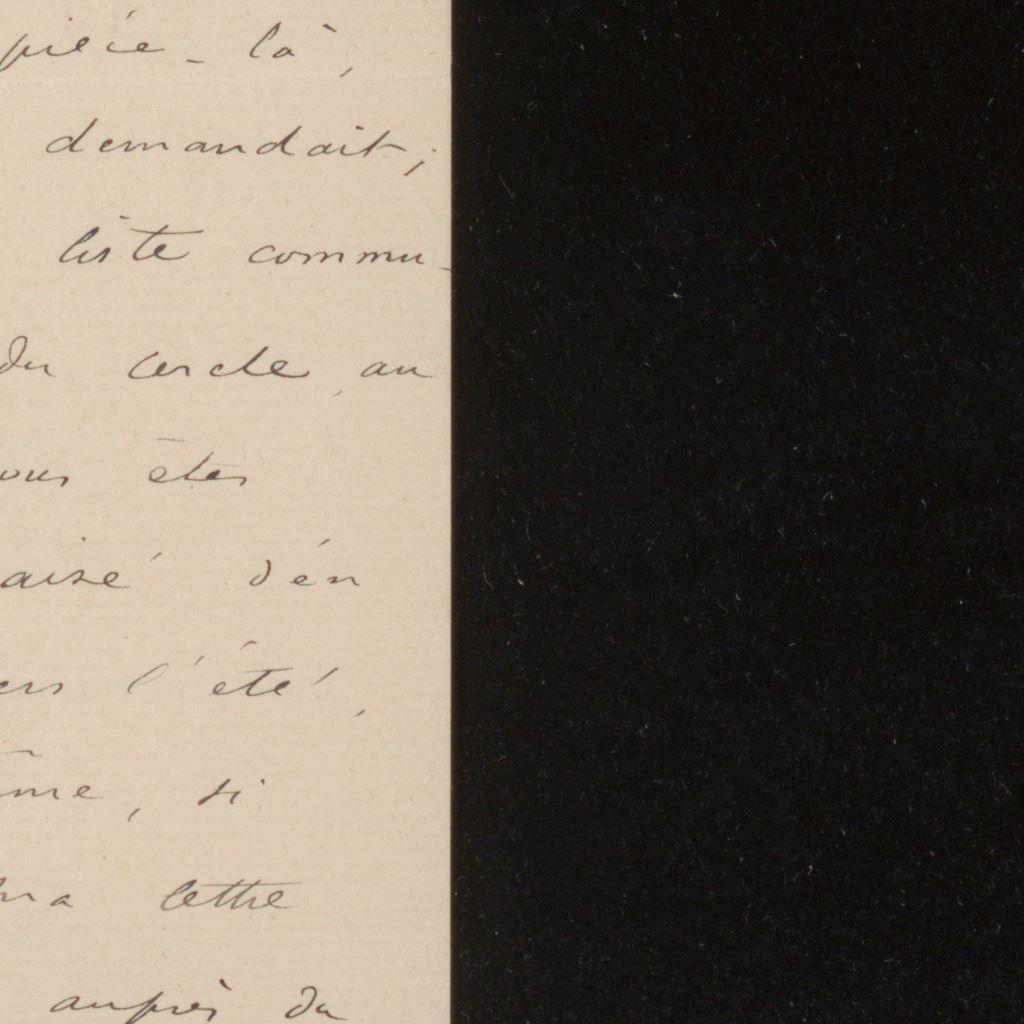 pièce-là,
demandait;
liste commu-
du cercle au
ous êtes
aisé d'en
ers l'été,
me, si
ma lettre
auprès du